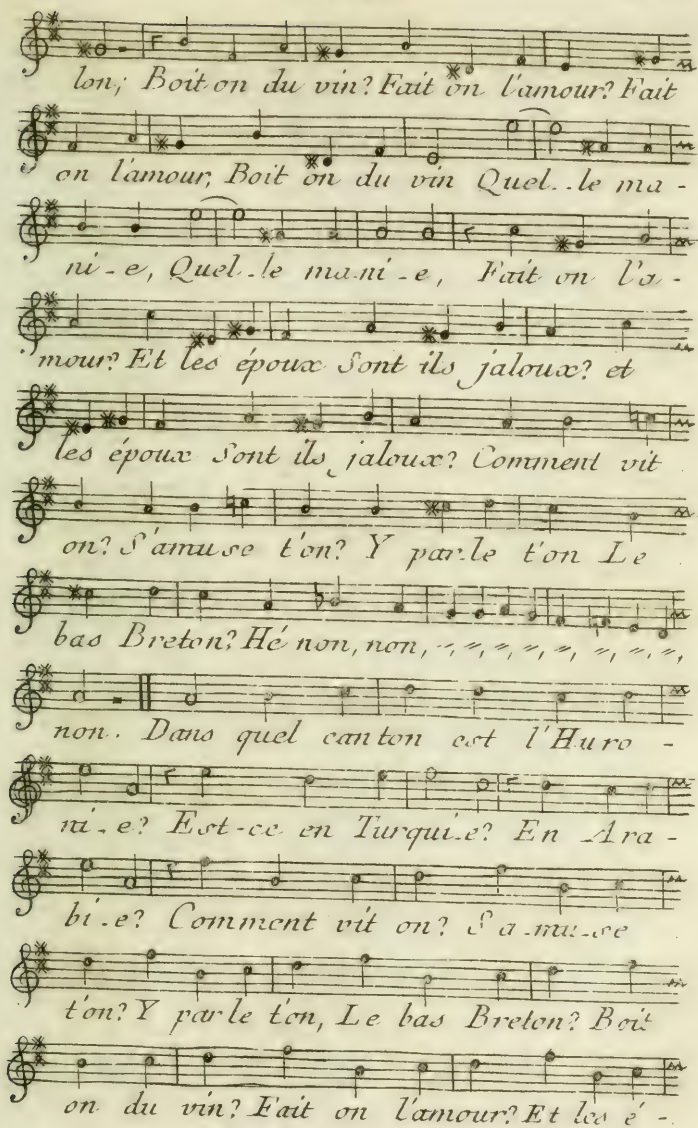 lon; Boit on du vin? Fait on l'amour? Fait
on l'amour, Boit on du vin Quel..le ma-
ni-e, Quel-le ma-ni-e, Fait on l'a-
mour? Et les époux Sont ils jaloux? et
les époux Sont ils jaloux? Comment vit
on? S'amuse t'on? Y par-le t'on Le
bas Breton? Hé non, non, -,, -,, -,, -,, -,, -,, -,, -,,
non. Dans quel canton est l'Huro-
ni-e? Est-ce en Turqui-e? En Ara-
bi-e? Comment vit on? S'a-mu-se
t'on? Y parle t'on, Le bas Breton? Boit
on du vin? Fait on l'amour? Et les é-